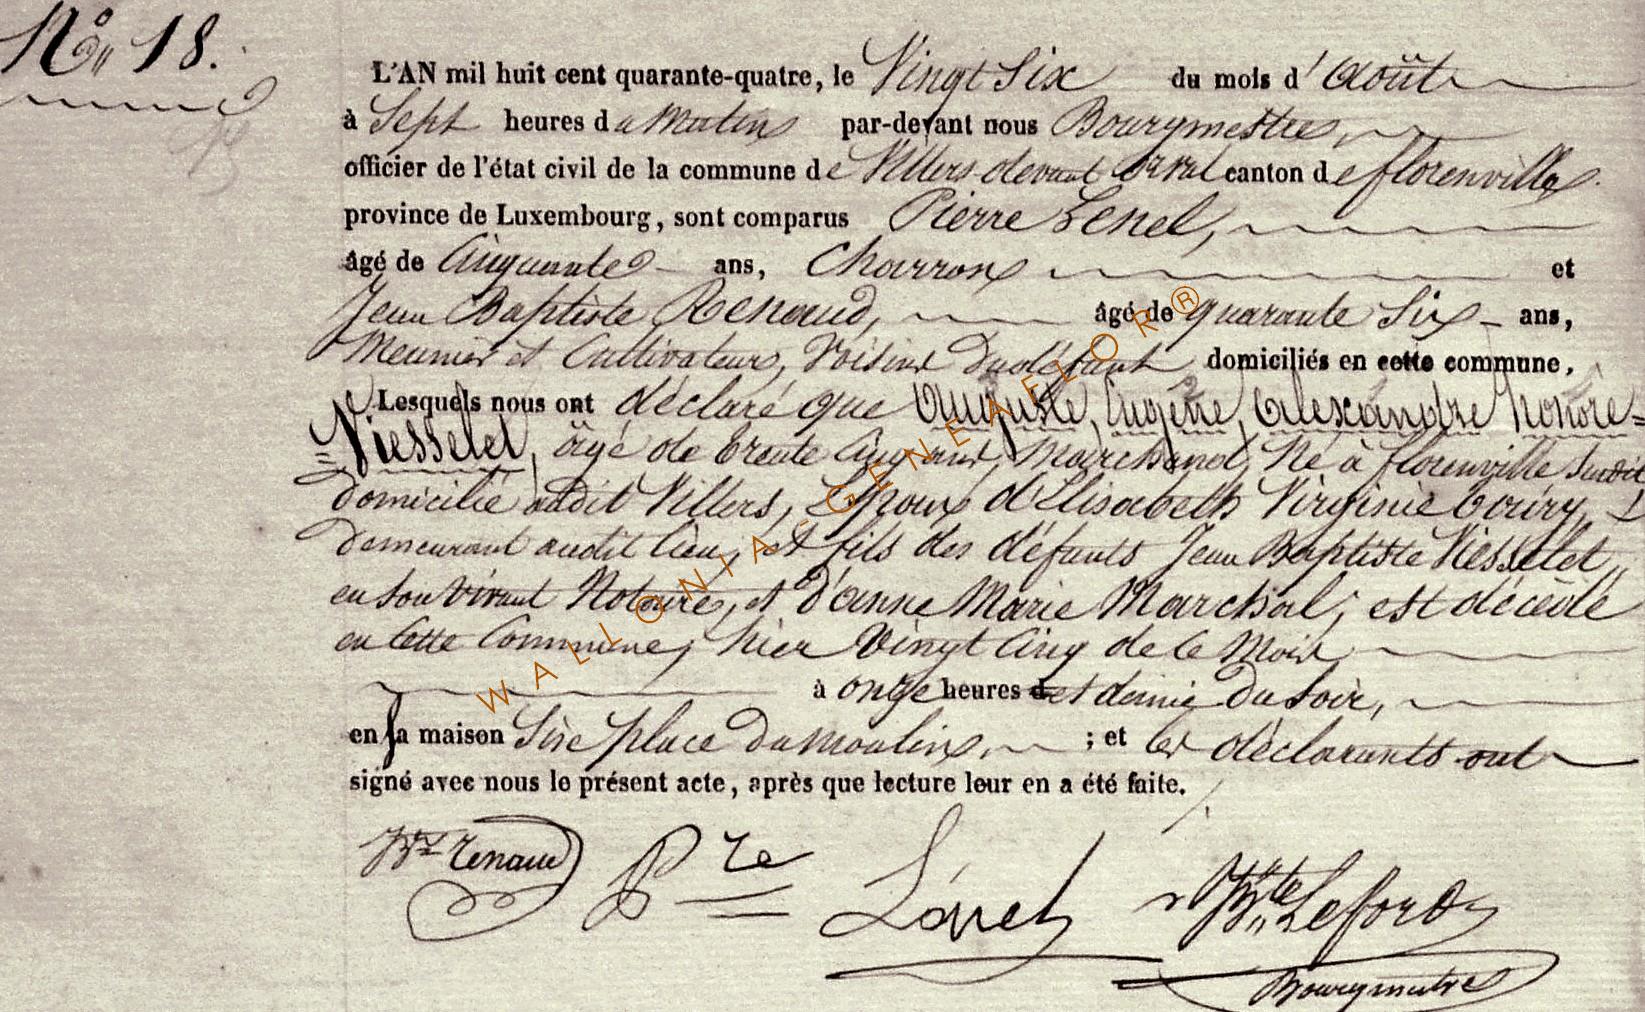 N° 18.
L'AN mil huit cent quarante-quatre, le Vingt Six du mois d'Août
à Sept heures du Matin par-devant nous Bourgmestre,
officier de l'état civil de la commune de Villers devant Orval canton de florenville
province de Luxembourg, sont comparus Pierre Lenel,
âgé de Cinquante ans, Charron et
Jean Baptiste Renaud, âgé de quarante Six ans,
Meunier et Cultivateur, Voisins du défunt domiciliés en cette commune,
Lesquels nous ont déclaré que Auguste, Eugène, Alexandre Honoré
Viesselet, âgé de trente Cinq ans, Marchand, Né à florenville, Susdit
domicilié audit Villers, Epoux d'Elisabeth Virginie
demeurant audit lieu, et fils des défunts Jean Baptiste Viesselet,
en son vivant Notaire, et d'anne Marie Marchal, est décédé
en Cette Commune, hier Vingt Cinq de Ce Mois
à onze heures et demie du Soir,
en sa maison Sise place du moulin, ; et les déclarants ont
signé avec nous le présent acte, après que lecture leur en a été faite.
Renaud Pre Lenel Bte Leford
Bourgmestre
WALLONIA-GENEAFLOR®